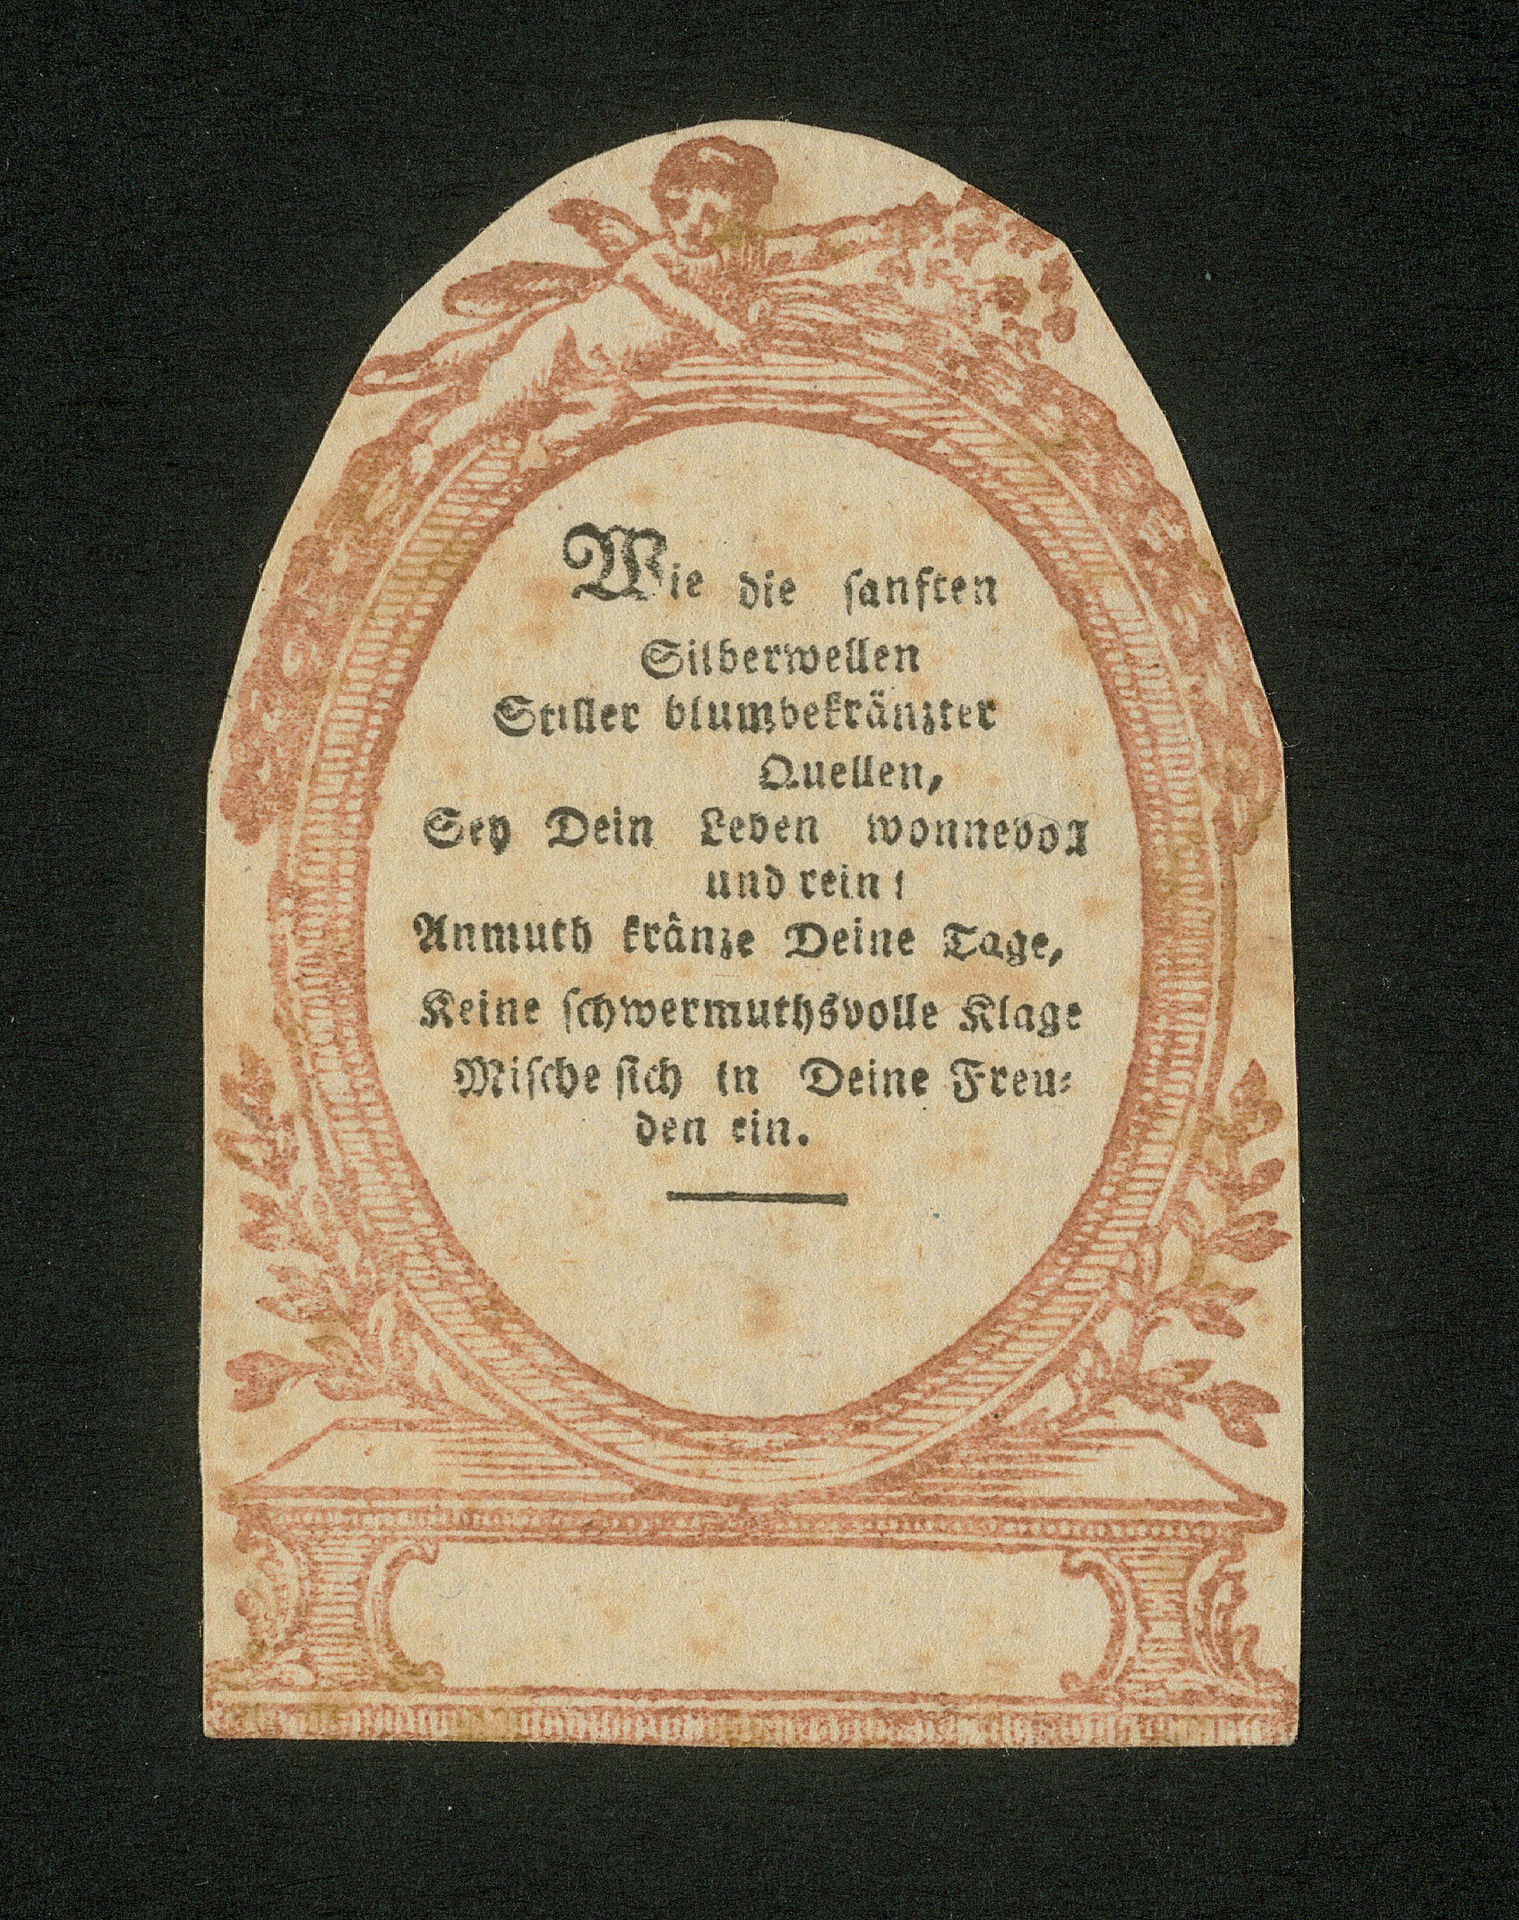 Wie die ſanften
Silberwellen
Stiller blumbekränzter
Quellen,
Sey Dein Leben wonnevoll
und rein!
Anmuth kränze Deine Tage,
Keine ſchwermuthsvolle Klage
Miſche ſich in Deine Freu⸗
den ein.